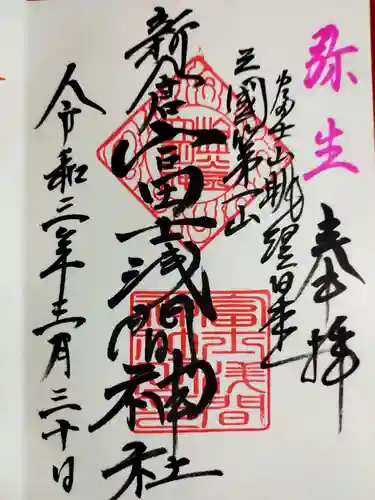 弥生
奉拝
富士山眺望日本一
三國第一山
新倉富士浅間神社
令和三年三月三十日
富士浅間